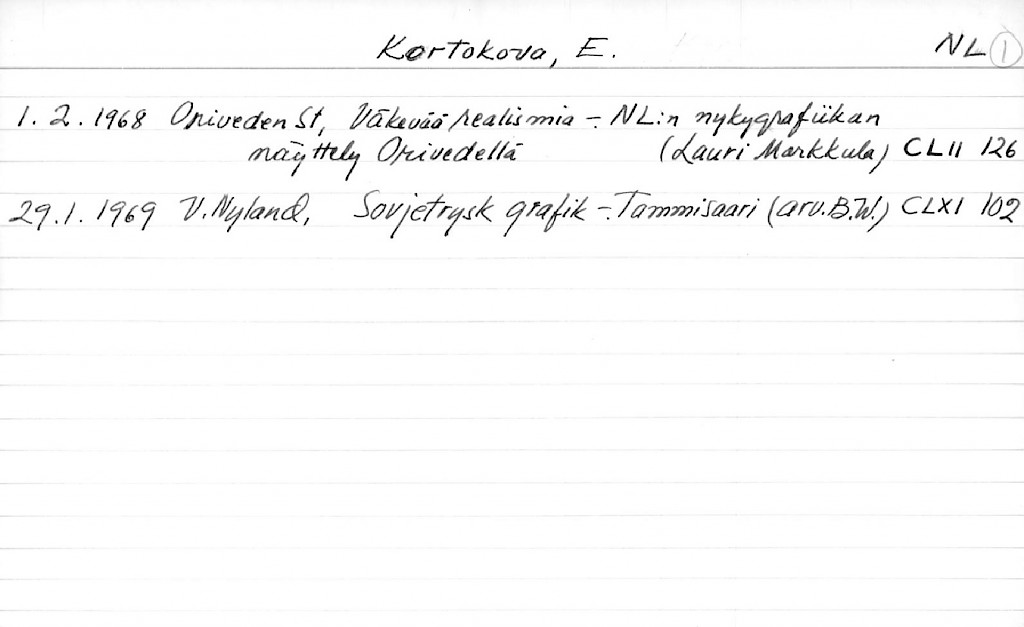 Kortokova, E. NL 1
1. 2. 1968 Oriveden St, Väkevää realismia -: NL:n nykygrafiikan
näyttely Orivedellä (Lauri Markkula) CLII 126
29.1. 1969 V. Nyland, Sovjetrysk grafik -: Tammisaari (arv. B.W.) CLXI 102